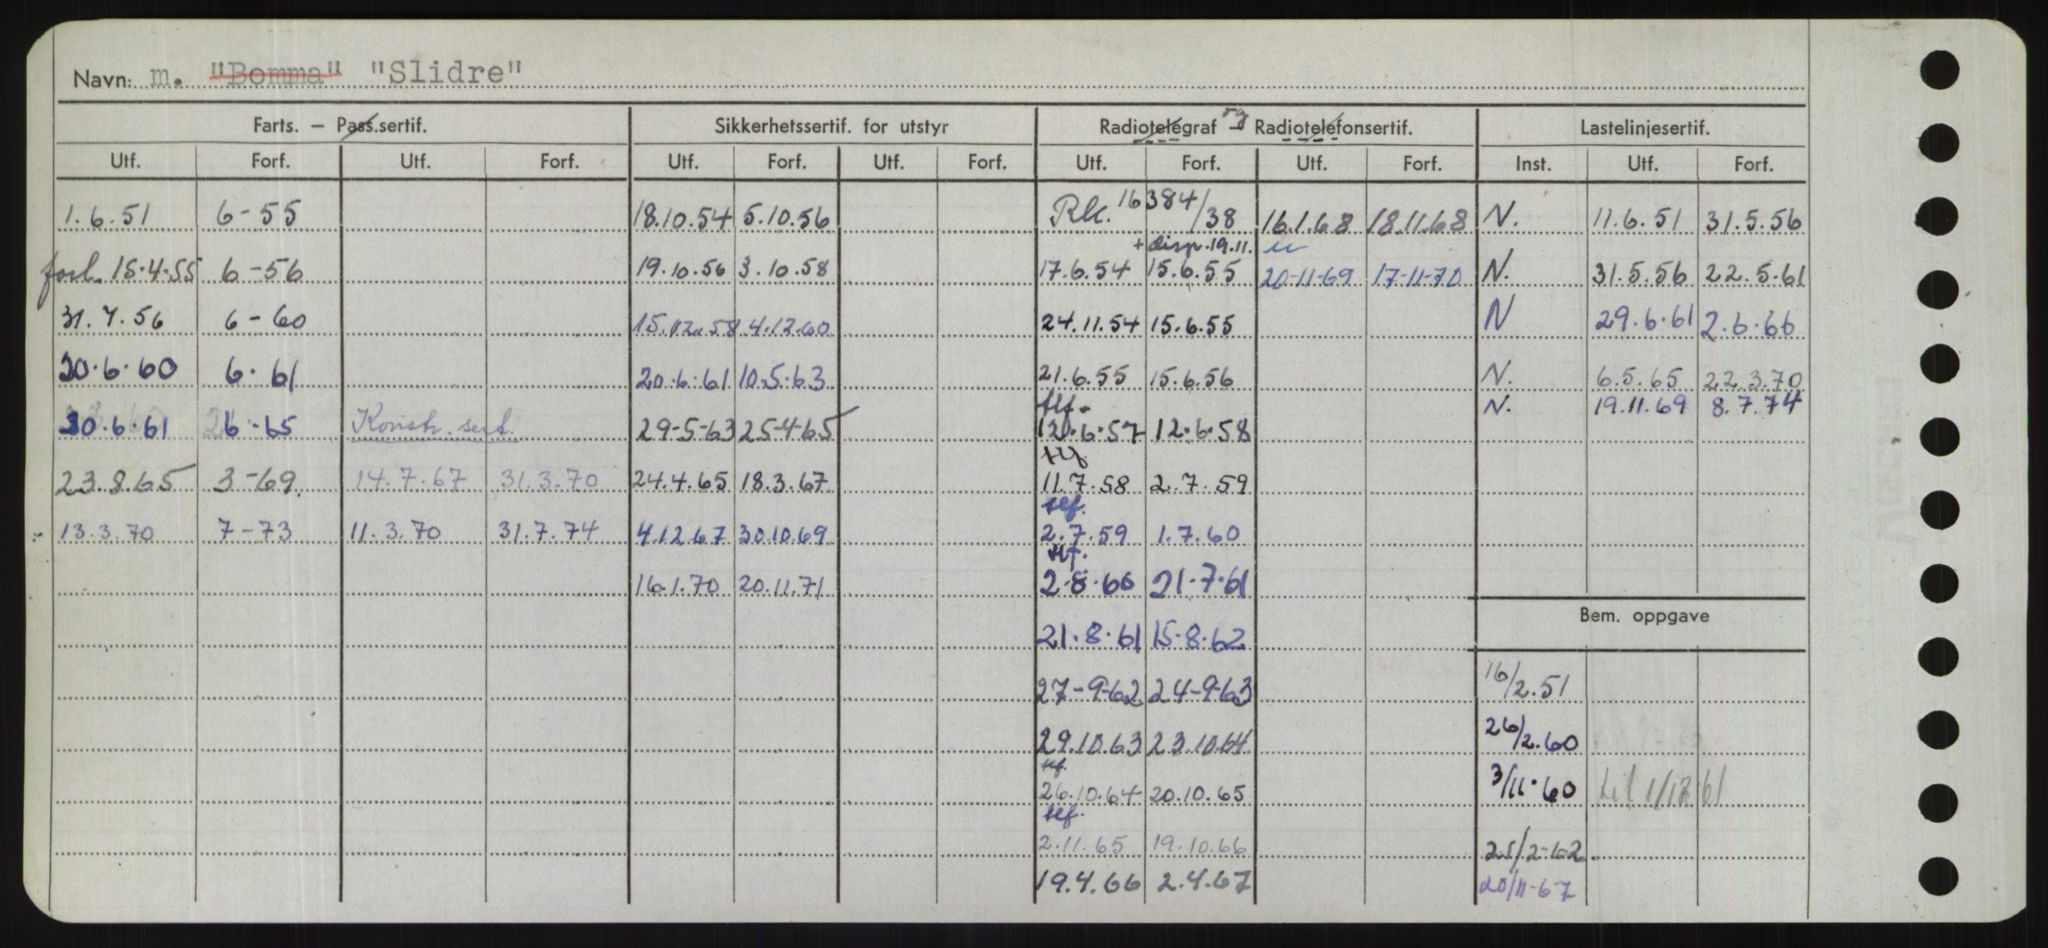 Navn: m. "Bomma" "Slidre"
Farts. — Pass.sertif. Sikkerhetssertif. for utstyr Radiotelegraf og Radiotelefonsertif. Lastelinjesertif.
Utf. Forf. Utf. Forf. Utf. Forf. Utf. Forf. Utf. Forf. Utf. Forf. Inst. Utf. Forf.
1.6.51 6-55 18.10.54 5.10.56 Rk. 16384/38 16.1.68 18.11.68 N. 11.6.51 31.5.56
+ disp. 19.11.
forl. 15-4-55 6-56 19.10.56 3.10.58 17.6.54 15.6.55 20-11-69 17-11-70 N. 31.5.56 22.5.61
31.7.56 6-60 15.12.58 4.12.60 24.11.54 15.6.55 N 29.6.61 2.6.66
20.6.60 6.61 20.6.61 10.5.63 21.6.55 15.6.56 N. 6.5.65 22.3.70
tlf. N. 19.11.69 8.7.74
30.6.61 6-65 Konstr. sert. 29-5-63 25-4-65 20.6.57 12.6.58
tlf
23.8.65 3-69. 14.7.67 31.3.70 24.4.65 18.3.67 11.7.58 2.7.59
tlf.
13.3.70 7-73 11.3.70 31.7.74 4.12.67 30.10.69 2.7.59 1.7.60
tlf.
16.1.70 20.11.71 2.8.60 21.7.61
Bem. oppgave
21.8.61 15.8.62
27-9-62 24-9-63 16/2.51
29.10.63 23.10.64 26/2.60
tlf.
26.10.64 20.10.65 3/11.60 til 1/12 61
tlf.
2.11.65 19.10.66 25/2-62
19.4.66 2.4.67 20/11-67